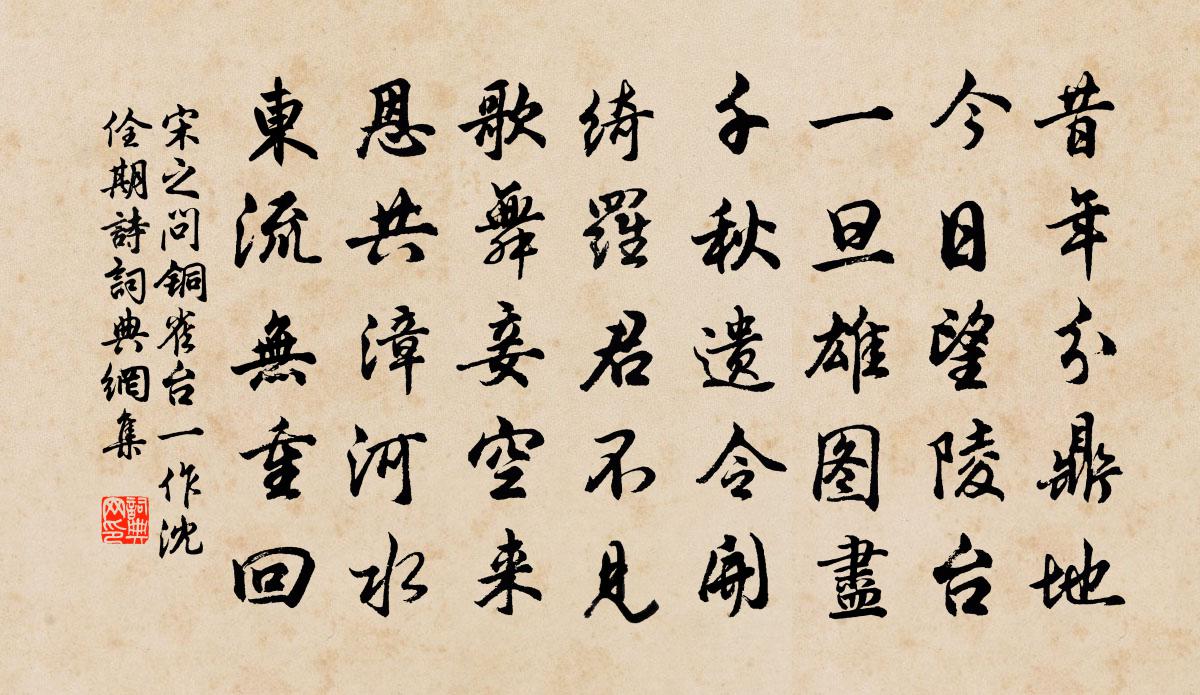 昔年分鼎地
今日望陵台
一旦雄图盡
千秋遗令開
绮羅君不見
歌舞妾空来
恩共漳河水
東流無重回
宋之问铜雀台一作沈
佺期詩詞典網集
詞典网印